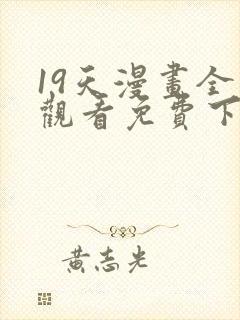 19天漫畫全
觀看免費下
黃志光